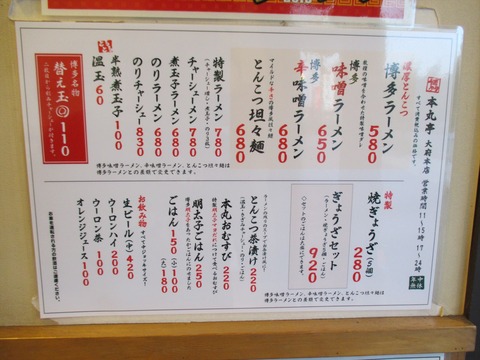 本丸亭 大府本店
営業時間 11〜15時 17〜24時
年中無休
すべて消費税込みの価格です。
濃厚とんこつ
博多ラーメン 580
博多味噌ラーメン 650
博多辛味噌ラーメン 680
マイルドな辛さの博多風担々麺
とんこつ坦々麺 680
特製ラーメン 780
チャーシューメン 780
煮玉子ラーメン 680
のりラーメン 680
のりチャーシュー 830
半熟煮玉子 100
温玉 60
博多名物
替え玉 110
博多味噌ラーメン、辛味噌ラーメン、とんこつ坦々麺は
博多ラーメンとの差額で変更できます。
特製
焼ぎょうざ(5個) 280
ぎょうざセット 920
とんこつ茶漬け 220
本丸おむすび 220
明太子ごはん 250
ごはん 150 (小) 100 (大) 180
お飲み物
生ビール(中) 420
ウーロンハイ 200
ウーロン茶 100
オレンジジュース 100
お車を運転される方の飲酒はご遠慮ください。
博多味噌ラーメン、辛味噌ラーメン、とんこつ坦々麺は
博多ラーメンとの差額で変更できます。